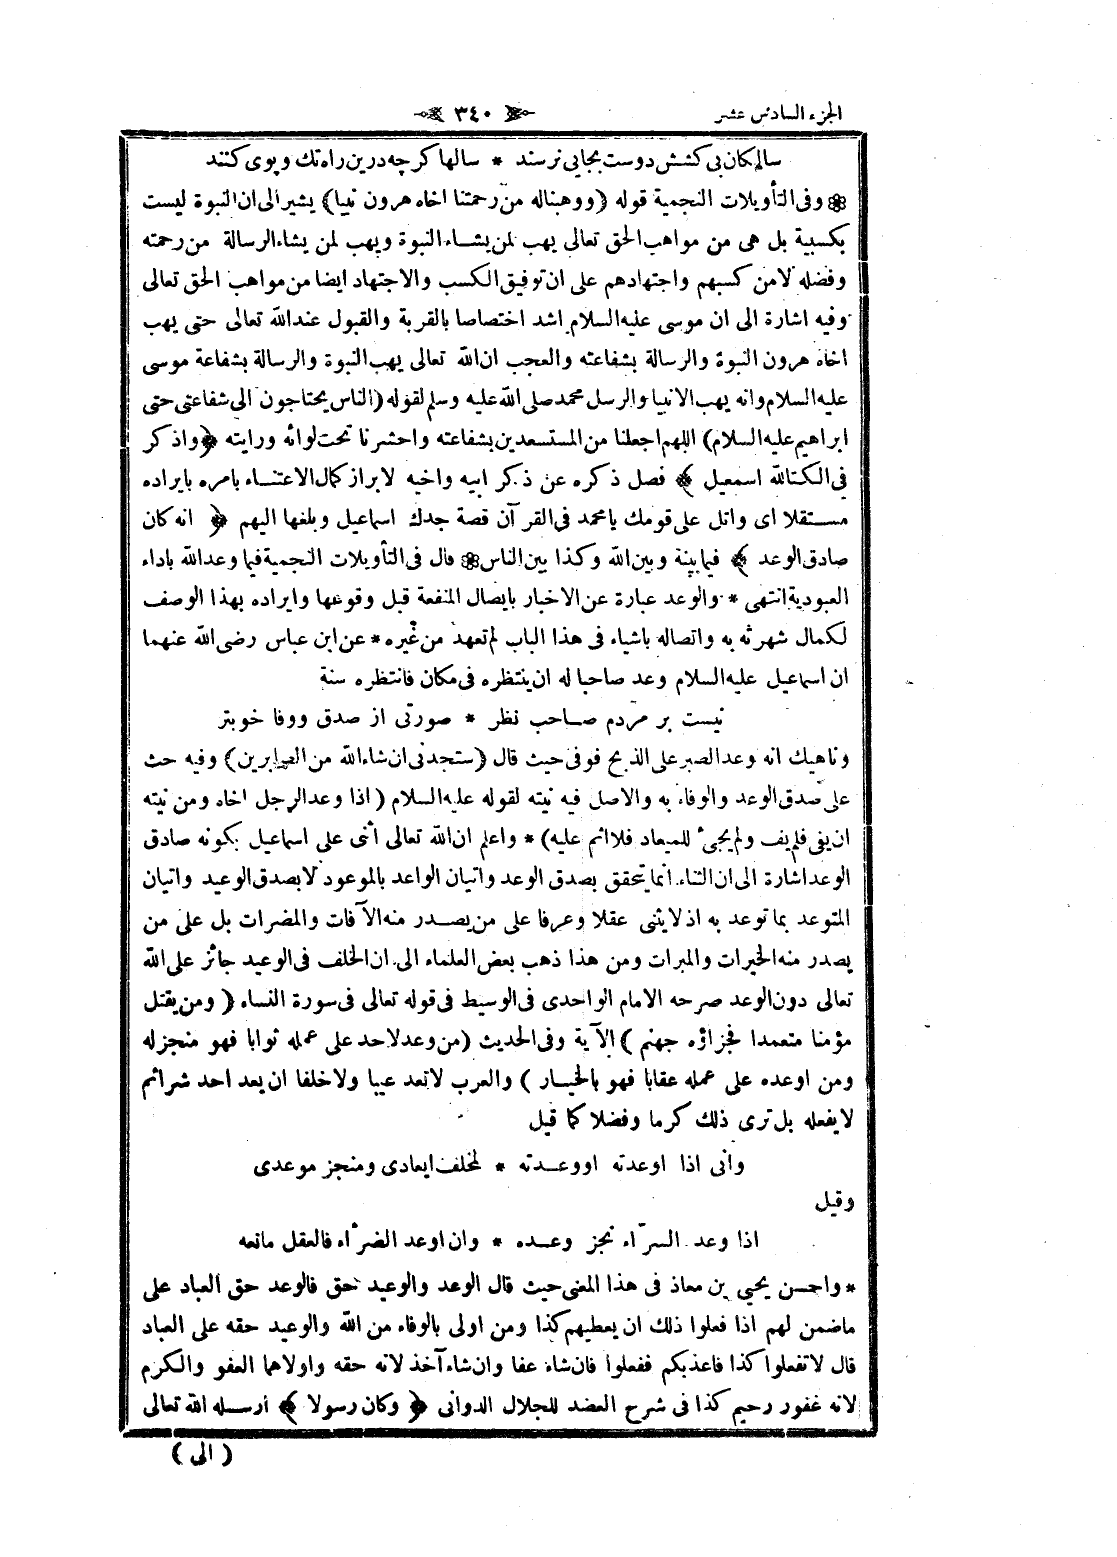 الجزء السادس عشر ٣٤٠
سالکان بی کشش دوست بجایی نرسند * سالها کرچه درین راه تك و پوی کنند
وفى التأويلات النجمية قوله (ووهبناله من رحمتنا اخاه هرون نبيا) يشير الى ان النبوة ليست
بكسبية بل هى من مواهب الحق تعالى يهب لمن يشاء النبوة ويهب لمن يشاء الرسالة من رحمته
وفضله لامن كسبهم واجتهادهم على ان توفيق الكسب والاجتهاد ايضا من مواهب الحق تعالى
وفيه اشارة الى ان موسى عليه السلام اشد اختصاصا بالقربة والقبول عند الله تعالى حتى يهب
اخاه هرون النبوة والرسالة بشفاعته والعجب ان الله تعالى يهب النبوة والرسالة بشفاعة موسى
عليه السلام وانه يهب الانبيا والرسل محمد صلى الله عليه وسلم لقوله (الناس يحتاجون الى شفاعتى حتى
ابراهيم عليه السلام) اللهم اجعلنا من المستسعدين بشفاعته واحشرنا تحت لوائه ورايته ﴿ واذكر
فى الكتاب اسمعيل ﴾ فصل ذكره عن ذكر ابيه واخيه لابراز كمال الاعتناء بامره بايراده
مستقلا اى واتل على قومك يامحمد فى القرآن قصة جدك اسماعيل وبلغها اليهم ﴿ انه كان
صادق الوعد ﴾ فيما بينه وبين الله وكذا بين الناس قال فى التأويلات النجمية فيما وعد الله باداء
العبودية انتهى * والوعد عبارة عن الاخبار بايصال المنفعة قبل وقوعها وايراده بهذا الوصف
لكمال شهرته به واتصاله باشياء فى هذا الباب لم تعهد من غيره * عن ابن عباس رضى الله عنهما
ان اسماعيل عليه السلام وعد صاحبا له ان ينتظره فى مكان فانتظره سنة
نيست بر مردم صاحب نظر * صورتى از صدق ووفا خوبتر
وناهيك انه وعد الصبر على الذبح فوفى حيث قال (ستجدنى ان شاء الله من الصابرين) وفيه حث
على صدق الوعد والوفاء به والاصل فيه نيته لقوله عليه السلام (اذا وعد الرجل اخاه ومن نيته
ان يفى فلم يف ولم يجئ للميعاد فلا اثم عليه) * واعلم ان الله تعالى اثنى على اسماعيل بكونه صادق
الوعد اشارة الى ان الثناء انما يتحقق بصدق الوعد واتيان الواعد بالموعود لا بصدق الوعيد واتيان
المتوعد بما توعد به اذ لا يثنى عقلا وعرفا على من يصدر منه الآفات والمضرات بل على من
يصدر منه الخيرات والمبرات ومن هذا ذهب بعض العلماء الى ان الخلف فى الوعيد جائز على الله
تعالى دون الوعد صرحه الامام الواحدى فى الوسيط فى قوله تعالى فى سورة النساء (ومن يقتل
مؤمنا متعمدا فجزاؤه جهنم) الآية وفى الحديث (من وعد لاحد على عمله ثوابا فهو منجز له
ومن اوعده على عمله عقابا فهو بالخيار) والعرب لا تعد عيبا ولا خلفا ان يعد احد شرا ثم
لا يفعله بل ترى ذلك كرما وفضلا كما قيل
وانى اذا اوعدته اووعدته * لمخلف ايعادى ومنجز موعدى
وقيل
اذا وعد السراء نجز وعده * وان اوعد الضراء فالعقل مانعه
* واحسن يحيى بن معاذ فى هذا المعنى حيث قال الوعد والوعيد حق فالوعد حق العباد على
ماضمن لهم اذا فعلوا ذلك ان يعطيهم كذا ومن اولى بالوفاء من الله والوعيد حقه على العباد
قال لا تفعلوا كذا فاعذبكم ففعلوا فان شاء عفا وان شاء آخذ لانه حقه واولاهما العفو والكرم
لانه غفور رحيم كذا فى شرح العضد للجلال الدوانى ﴿ وكان رسولا ﴾ أرسله الله تعالى
(الى)